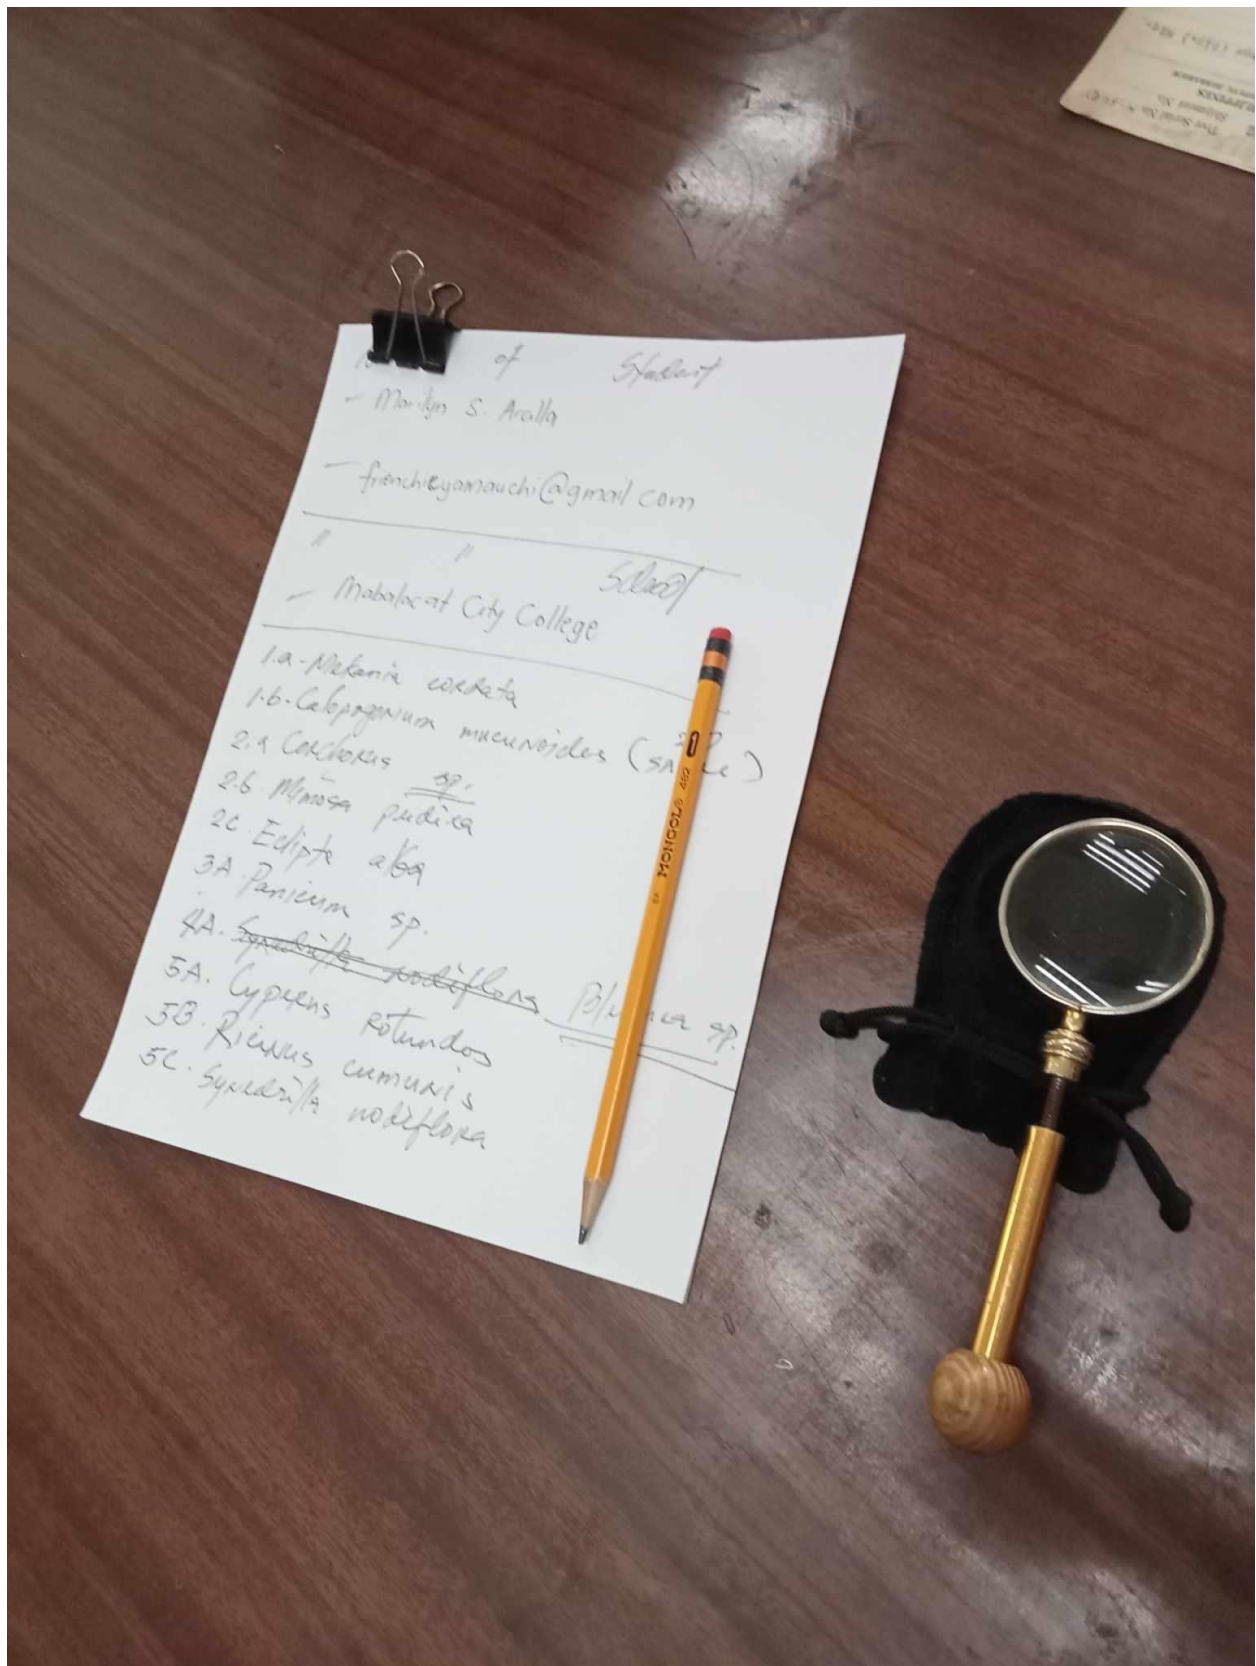 of Student
- Marilyn S. Aralla
- frenchieyamauchi@gmail com
" " School
- Mabalacat City College
1.a - Mekania cordata
1.b - Calopogonium mucunoides
2.a Corchorus sp.
2.b. Mimosa pudica
2c. Eclipta alba
3A. Panicum sp.
4A. Synedrilla nodiflora sp.
5A. Cyperus rotundos
5B. Ricinus cumunis
5C. Synedrilla nodiflora
MONGOL® 482 1
PHILIPPINES
Shipment No.
Tree Serial No.